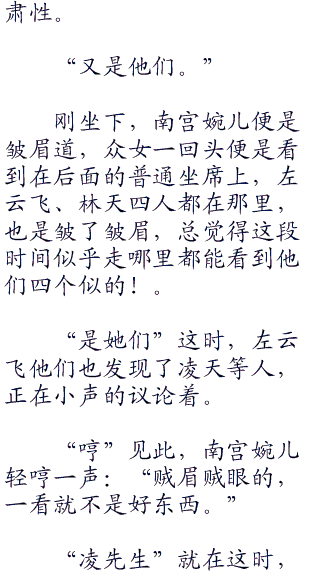 肃性。
“又是他们。”
刚坐下，南宫婉儿便是
皱眉道，众女一回头便是看
到在后面的普通坐席上，左
云飞、林天四人都在那里，
也是皱了皱眉，总觉得这段
时间似乎走哪里都能看到他
们四个似的！。
“是她们”这时，左云
飞他们也发现了凌天等人，
正在小声的议论着。
“哼”见此，南宫婉儿
轻哼一声：“贼眉贼眼的，
一看就不是好东西。”
“凌先生”就在这时，